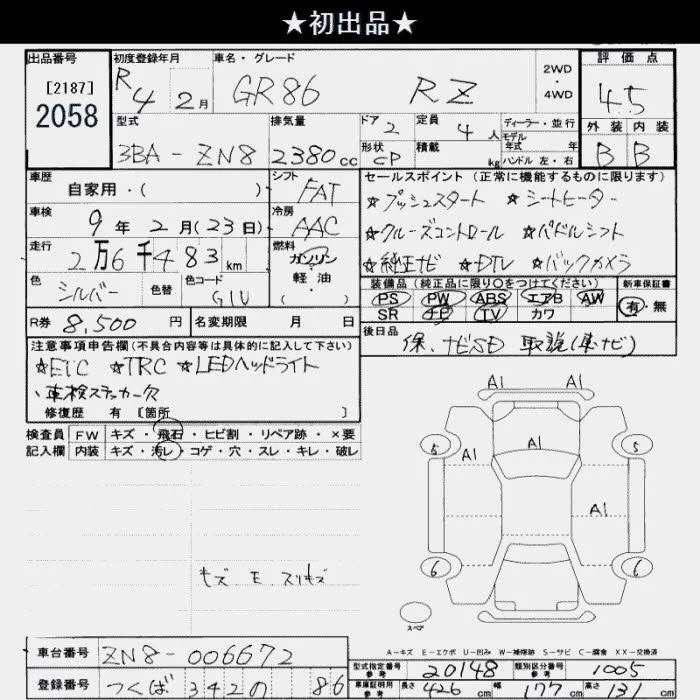 ★初出品★
出品番号 初度登録年月 車名・グレード 2WD・4WD 評価点
[2187]
2058
R 4 2月 GR86 RZ 4.5
型式 排気量 ドア 2 定員 4人 ディーラー・並行 外装 内装
モデル年式 年式
3BA-ZN8 2380cc 形状 CP 積載 kg ハンドル 左・右 B B
車歴 シフト セールスポイント(正常に機能するものに限ります)
自家用・( ) FAT ☆プッシュスタート ☆シートヒーター
車検 冷房
9年2月(23日) AAC ☆クルーズコントロール ☆パドルシフト
走行 燃料
2万6千483km ガソリン ☆純正ナビ ☆DTV ☆バックカメラ
軽・油
色 色替 色コード 装備品(純正品に限り○をつけてください) 新車保証書
シルバー G1U PS PW ABS エアB AW 有・無
SR ナビ TV カワ
R券 8,500円 名変期限 月 日 後日品
保、ナビSD 取説(車、ナビ)
注意事項申告欄(不具合内容等は具体的に記入して下さい)
☆ETC ☆TRC ☆LEDヘッドライト
・車検ステッカー欠
修復歴 有 [箇所 ]
検査員 FW キズ・飛石・ヒビ割・リペア跡・×要
記入欄 内装 キズ・汚レ・コゲ・穴・スレ・キレ・破レ
A1 A1
A1
5 A1 5
A1
6 6
キズ E スリキズ
スペア
A-キズ E-エクボ U-凹み W-補修跡 S-サビ C-腐食 XX-交換済
車台番号 ZN8-006672
型式指定番号 参考 20148 類別区分番号 参考 1005
登録番号 つくば 342 の 86
車庫証明用 参考 長さ 426cm 幅 177cm 高さ 131cm